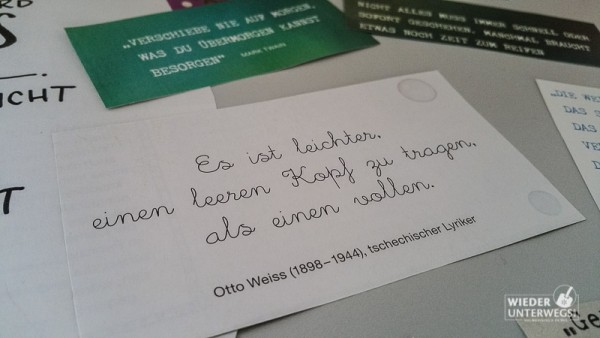 RD
S
ICHT
T
„VERSCHIEBE NIE AUF MORGEN,
WAS DU ÜBERMORGEN KANNST
BESORGEN“ MARK TWAIN
NICHT ALLES MUSS IMMER SCHNELL ODER
SOFORT GESCHEHEN. MANCHMAL BRAUCHT
ETWAS NOCH ZEIT ZUM REIFEN
Es ist leichter,
einen leeren Kopf zu tragen,
als einen vollen.
Otto Weiss (1898–1944), tschechischer Lyriker
„DIE WE
DAS S
DAS
VE
D
WIEDER
UNTERWEGS!
„Ge